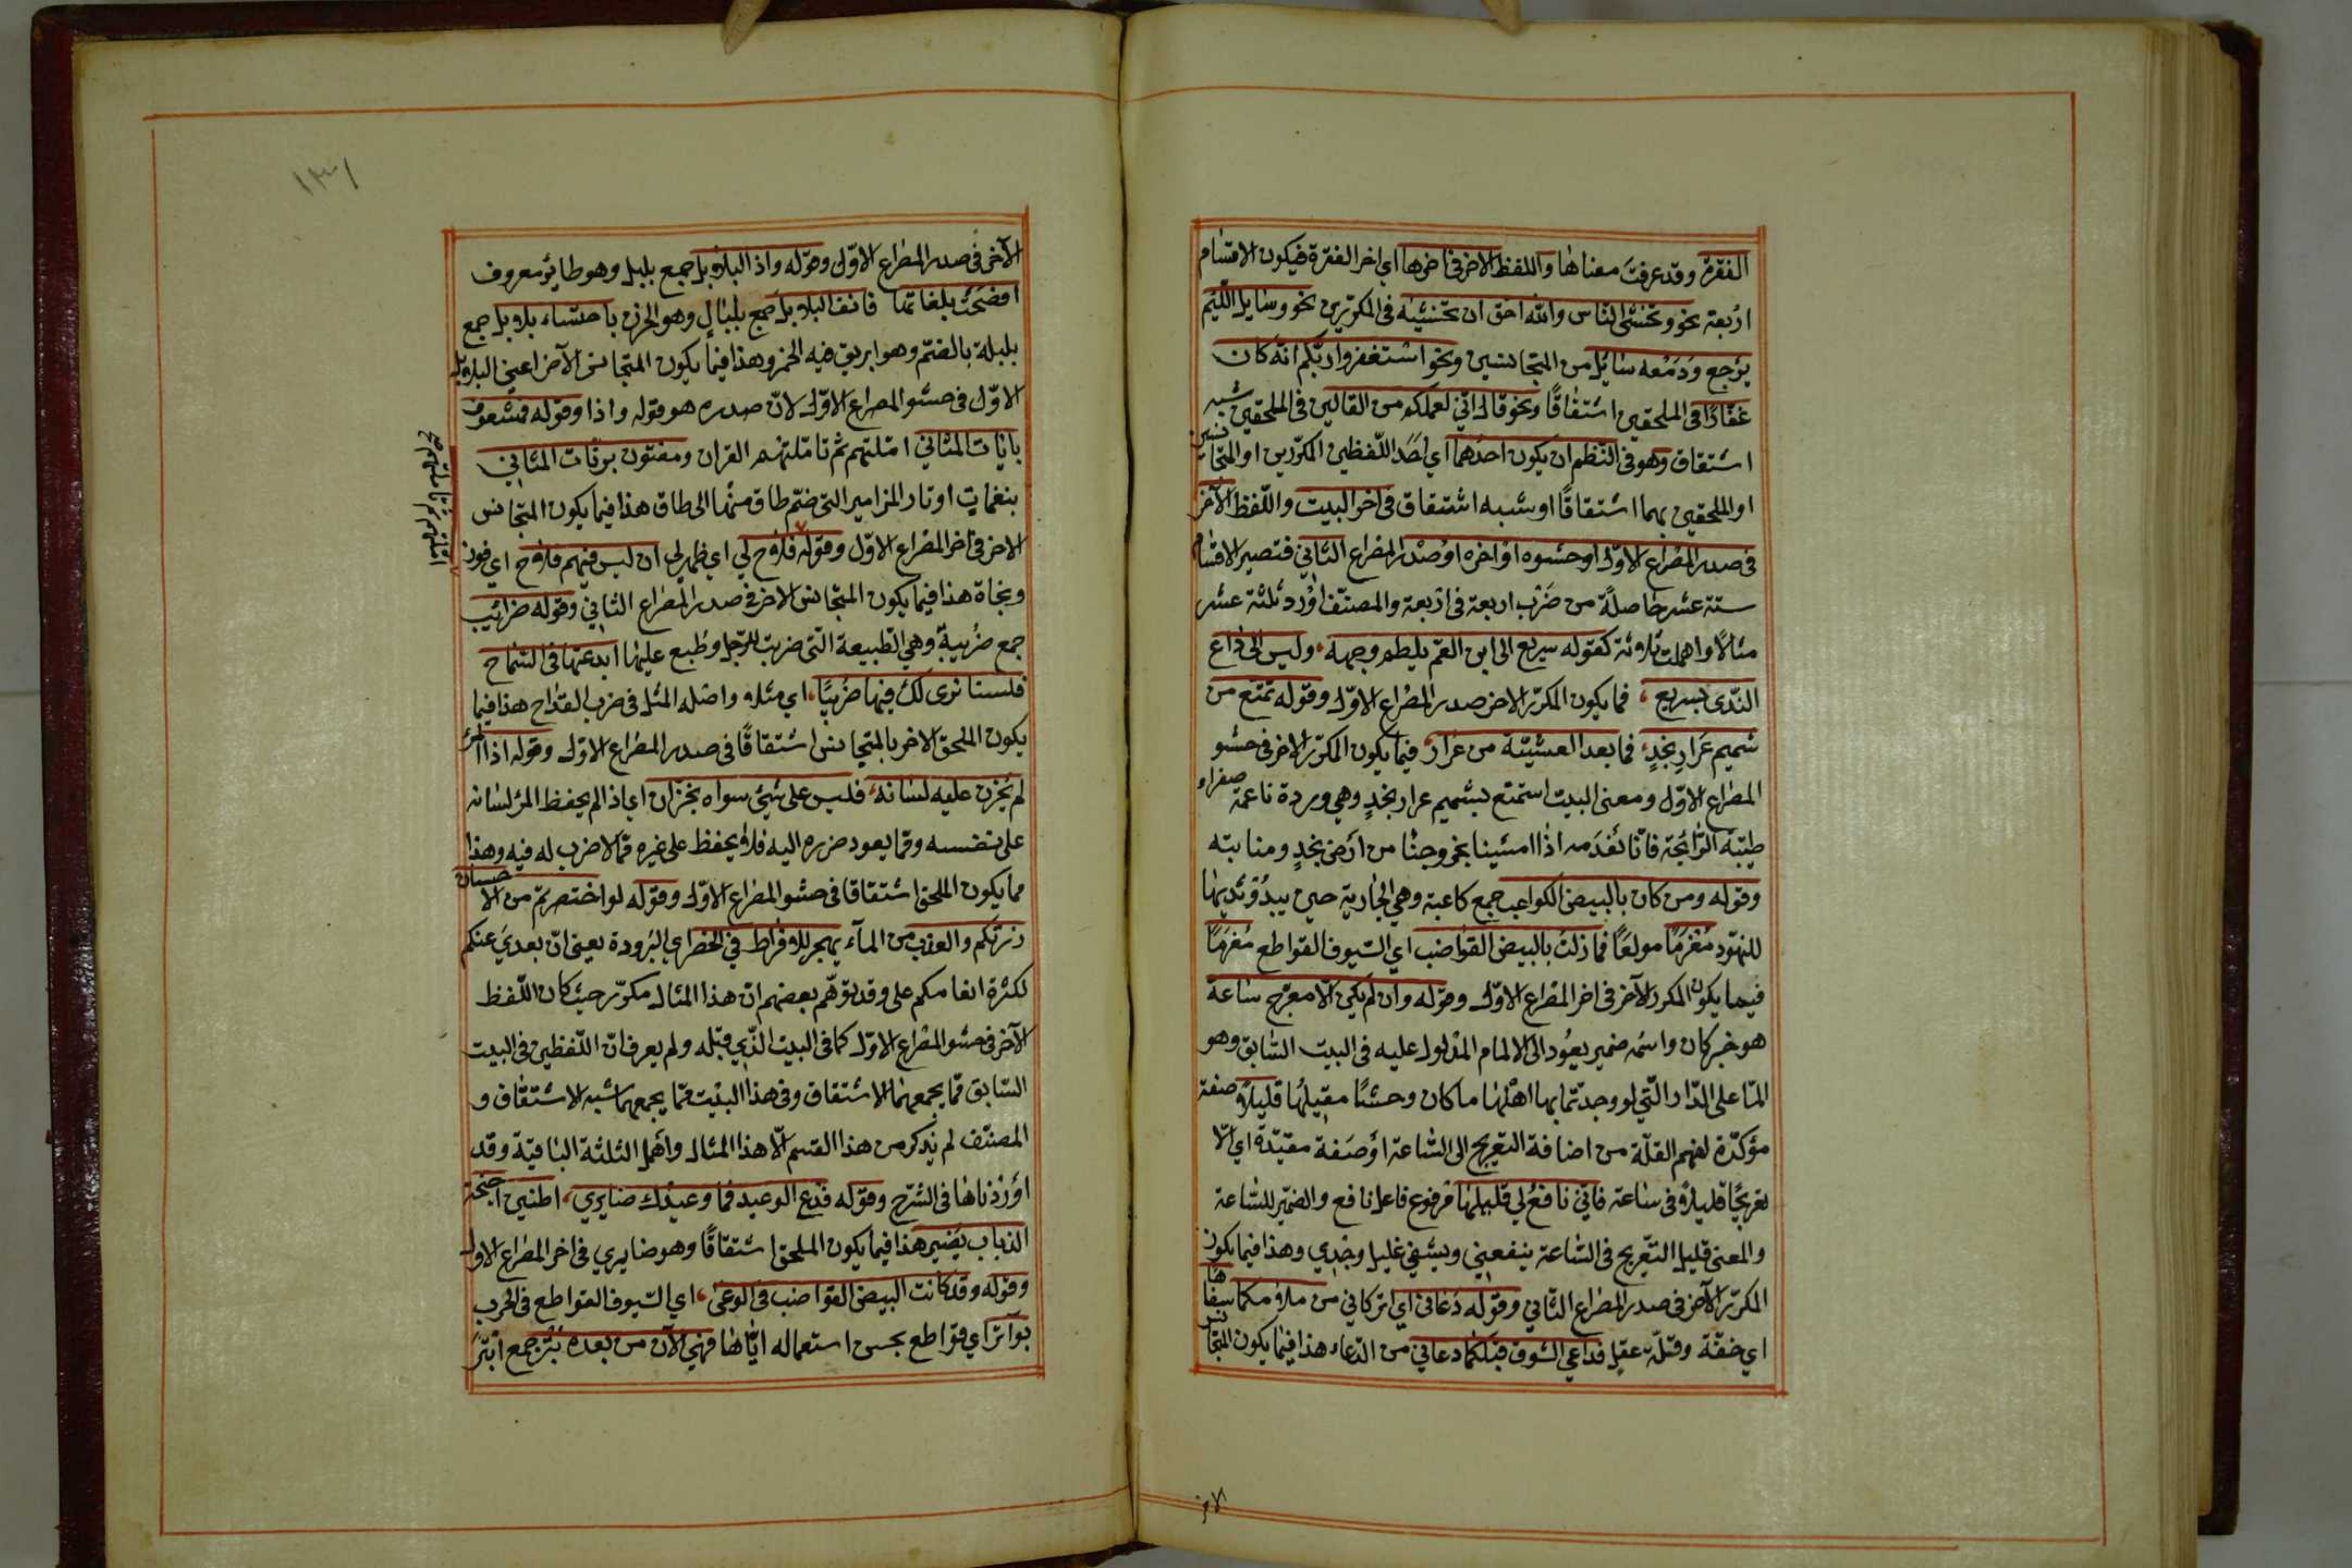 الفقرة وقد عرفت معناها واللفظ الآخر في اخرها اي اخر الفقرة فيكون الاقسام
اربعة نحو وتخشى الناس والله احق ان تخشيه في المكررين نحو وسايل اللئيم
يرجع ودمعه سايل من المتجانسين ونحو استغفروا ربكم انه كان
غفارا في الملحقين اشتقاقا ونحو قال اني لعملكم من القالين في الملحقين شبه
اشتقاق وهو في النظم ان يكون احدهما اي احد اللفظين المكررين او المتجانسين
او الملحقين بهما اشتقاقا او شبه اشتقاق في اخر البيت واللفظ الآخر
في صدر المصراع الاول او حشوه او اخره او صدر المصراع الثاني فتصير الاقسام
ستة عشر حاصلة من ضرب اربعة في اربعة والمصنف اورد ثلثة عشر
مثالا واهملت ثلاثة كقوله سريع الى ابن العم يلطم وجهه، وليس الى داع
الندى بسريع، فما يكون المكرر الاخر صدر المصراع الاول وقوله تمتع من
شميم عرار نجد، فما بعد العشية من عرار، فيما يكون المكرر الاخر في حشو
المصراع الاول ومعنى البيت استمتع بشميم عرار نجد وهي وردة ناعمة صفراء
طيبة الرائحة فانا نعدمه اذا امسينا بخروجنا من ارض نجد ومنابته
وقوله ومن كان بالبيض الكواعب جمع كاعبة وهي الجارية حين يبدو ثديها
للنهود مغرما مولعا فما زلت بالبيض القواضب اي السيوف القواطع مغرما
فيما يكون المكرر الآخر في اخر المصراع الاول وقوله وان لم يكن الا معرج ساعة
هو خبر كان واسمه ضمير يعود الى الالمام المدلول عليه في البيت السابق وهو
الما على الدار التي لو وجدتما بها اهلها ما كان وحشا مقيلها قليلا صفة
مؤكدة لفهم القلة من اضافة التعريج الى الساعة او صفة مقيدة اي الا
تعريجا قليلا في ساعة فاني نافع لي قليلها مرفوع فاعل نافع والضمير للساعة
والمعنى قليل التعريج في الساعة ينفعني ويشفي غليل وجدي وهذا فيما يكون
المكرر الآخر في صدر المصراع الثاني وقوله دعاني اي اتركاني من ملامكما سفاها
اي خفة وقلة عقل فداعي الشوق قبلكما دعاني من الدعاء هذا فيما يكون المتجانس
الاخر
١٣١
الآخر في صدر المصراع الاول وقوله واذا البلابل جمع بلبل وهو طاير معروف
افصحت بلغاتها فانف البلابل جمع بلبال وهو الحزن باحتساء بلابل جمع
بلبلة بالضم وهو ابريق فيه الخمر وهذا فيما يكون المتجانس الآخر اعني البلابل
الاول في حشو المصراع الاول لان صدره هو قوله واذا وقوله فمشعوف
بايات المثاني امثلتهم ثم تاملتهم القران ومفتون برنات المثاني
بنغمات اوتار المزامير التي ضم طاق منها الى طاق هذا فيما يكون المتجانس
الاخر في اخر المصراع الاول وقوله فلاح لي اي ظهر لي ان ليس فيهم فلاح اي فوز
ونجاة هذا فيما يكون المتجانس الاخر في صدر المصراع الثاني وقوله ضرائب
جمع ضريبة وهي الطبيعة التي ضربت للرجل وطبع عليها ابدعتها في السماح
فلسنا نرى لك فيها ضريبا، اي مثلا واصله المثل في ضرب القداح هذا فيما
يكون الملحق الاخر بالمتجانس اشتقاقا في صدر المصراع الاول وقوله اذا المرء
لم يخزن عليه لسانه، فليس على شيء سواه بخزان اي اذا لم يحفظ المرء لسانه
على نفسه وما يعود ضرره اليه فلا يحفظ على غيره مما لا ضرب له فيه وهذا
مما يكون الملحق اشتقاقا في حشو المصراع الاول وقوله لو اختصرتم من الاحسان
زرتكم والعذب من الماء يهجر للافراط في الخصر اي البرودة يعني ان بعدي عنكم
لكثرة انعامكم علي وقد توهم بعضهم ان هذا المثال مكرر حيث كان اللفظ
الآخر في حشو المصراع الاول كما في البيت الذي قبله ولم يعرف ان اللفظين في البيت
السابق مما يجمعهما الاشتقاق وفي هذا البيت مما يجمعهما شبه الاشتقاق و
المصنف لم يذكر من هذا القسم الا هذا المثال واهمل الثلثة الباقية وقد
اوردناها في الشرح وقوله فدع الوعيد فما وعيدك ضايري، اطنين اجنحة
الذباب يضير هذا فيما يكون الملحق اشتقاقا وهو ضايري في اخر المصراع الاول
وقوله وقد كانت البيض القواضب في الوغى، اي السيوف القواطع في الحرب
بواتر اي قواطع بحسن استعماله اياها فهي الآن من بعده بتر جمع ابتر